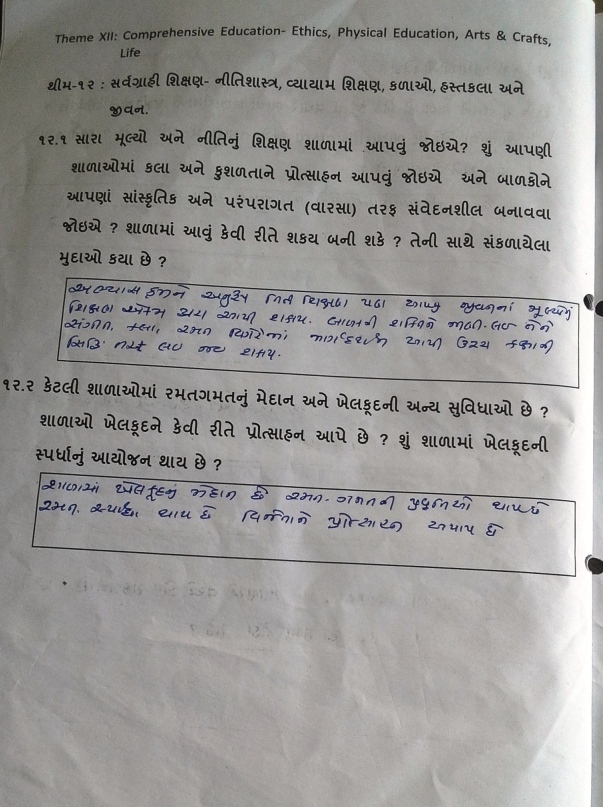 Theme XII: Comprehensive Education- Ethics, Physical Education, Arts & Crafts,
Life
થીમ-૧૨ : સર્વગ્રાહી શિક્ષણ- નીતિશાસ્ત્ર, વ્યાયામ શિક્ષણ, કળાઓ, હસ્તકલા અને
જીવન.
૧૨.૧ સારા મૂલ્યો અને નીતિનું શિક્ષણ શાળામાં આપવું જોઇએ? શું આપણી
શાળાઓમાં કલા અને કુશળતાને પ્રોત્સાહન આપવું જોઇએ અને બાળકોને
આપણાં સાંસ્કૃતિક અને પરંપરાગત (વારસા) તરફ સંવેદનશીલ બનાવવા
જોઇએ ? શાળામાં આવું કેવી રીતે શકય બની શકે ? તેની સાથે સંકળાયેલા
મુદાઓ કયા છે ?
અભ્યાસ ક્રમને અનુરૂપ શિક્ષણ પણ જીવનનાં મૂલ્યોનું
શિક્ષણ આપી શકાય. બાળકની શક્તિને જાણી-લઇ તેને
સંગીત, કલા, રમત વિગેરેમાં માર્ગદર્શન આપી ઉચ્ચ કક્ષાની
સિદ્ધિ તરફ લઇ જઇ શકાય.
૧૨.૨ કેટલી શાળાઓમાં રમતગમતનું મેદાન અને ખેલકૂદની અન્ય સુવિધાઓ છે ?
શાળાઓ ખેલકૂદને કેવી રીતે પ્રોત્સાહન આપે છે ? શું શાળામાં ખેલકૂદની
સ્પર્ધાનું આયોજન થાય છે ?
શાળામાં ખેલકૂદનું મેદાન છે રમત-ગમતની પ્રવૃત્તિઓ થાય છે
રમત. સ્પર્ધા થાય છે વિજેતાને પ્રોત્સાહન અપાય છે